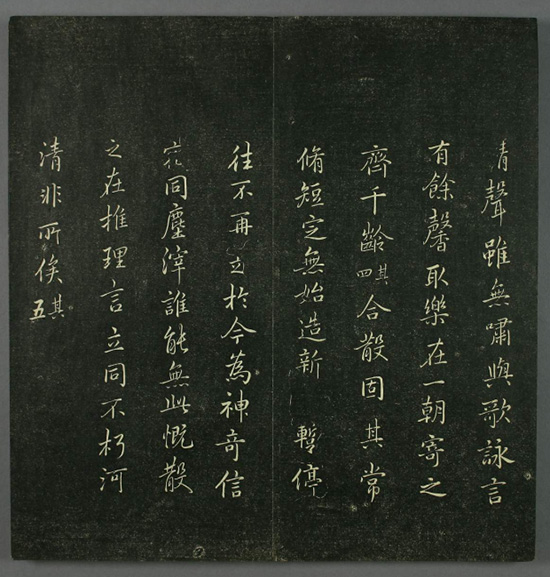 清聲雖無嘯與歌詠言
有餘馨取樂在一朝寄之
齊千齡其四合散固其常
脩短定無始造新暫停
往不再於今為神奇信
宿同塵滓誰能無此慨散
之在推理言立同不朽河
清非所俟其五